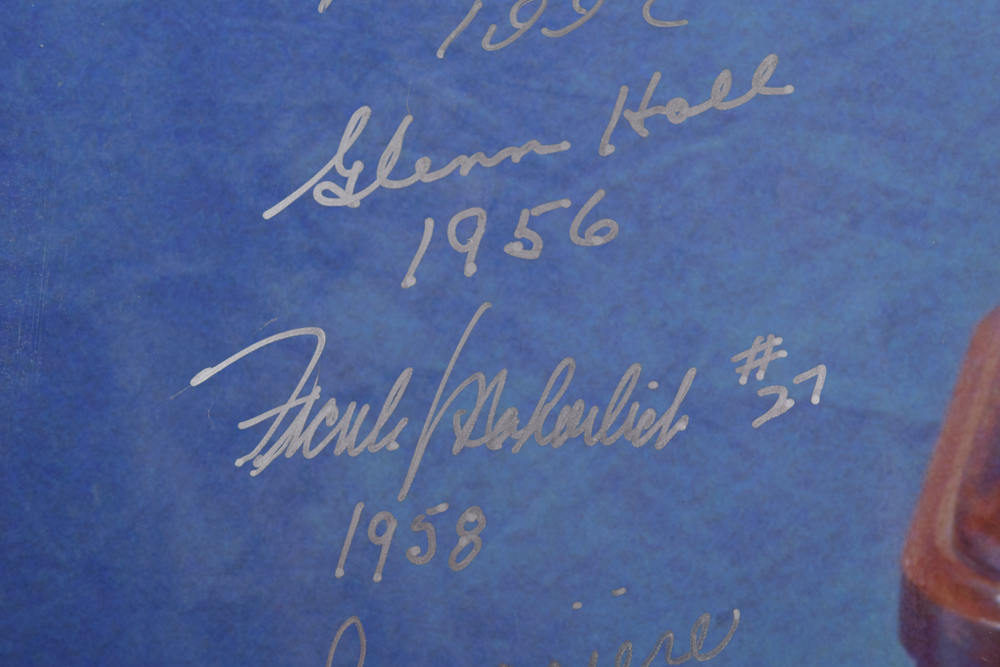 Glenn Hall
1956
Frank Mahovlich #27
1958